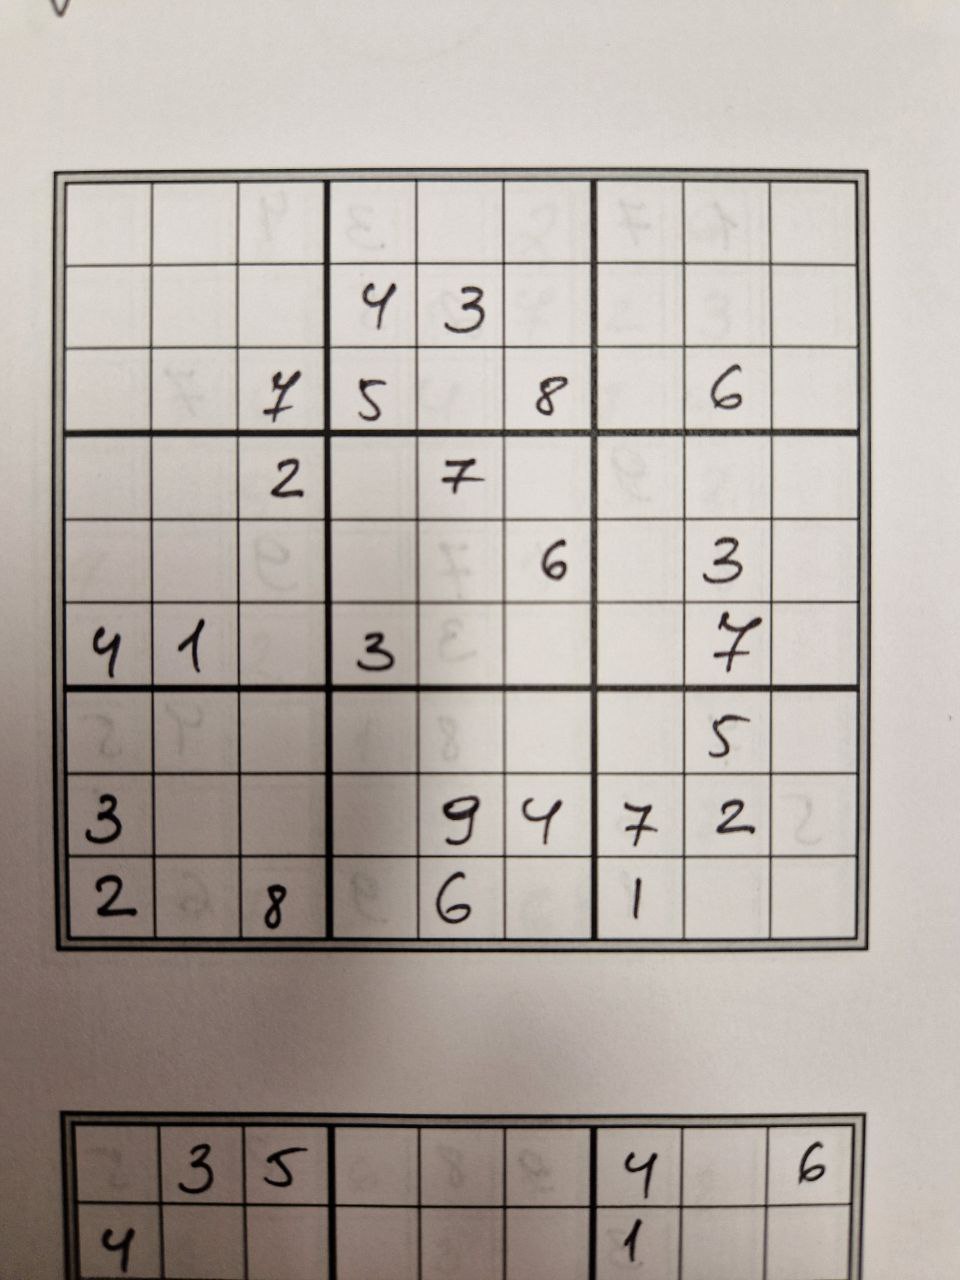 4 3
7 5 8 6
2 7
6 3
4 1 3 7
5
3 9 4 7 2
2 8 6 1
3 5 4 6
4 1